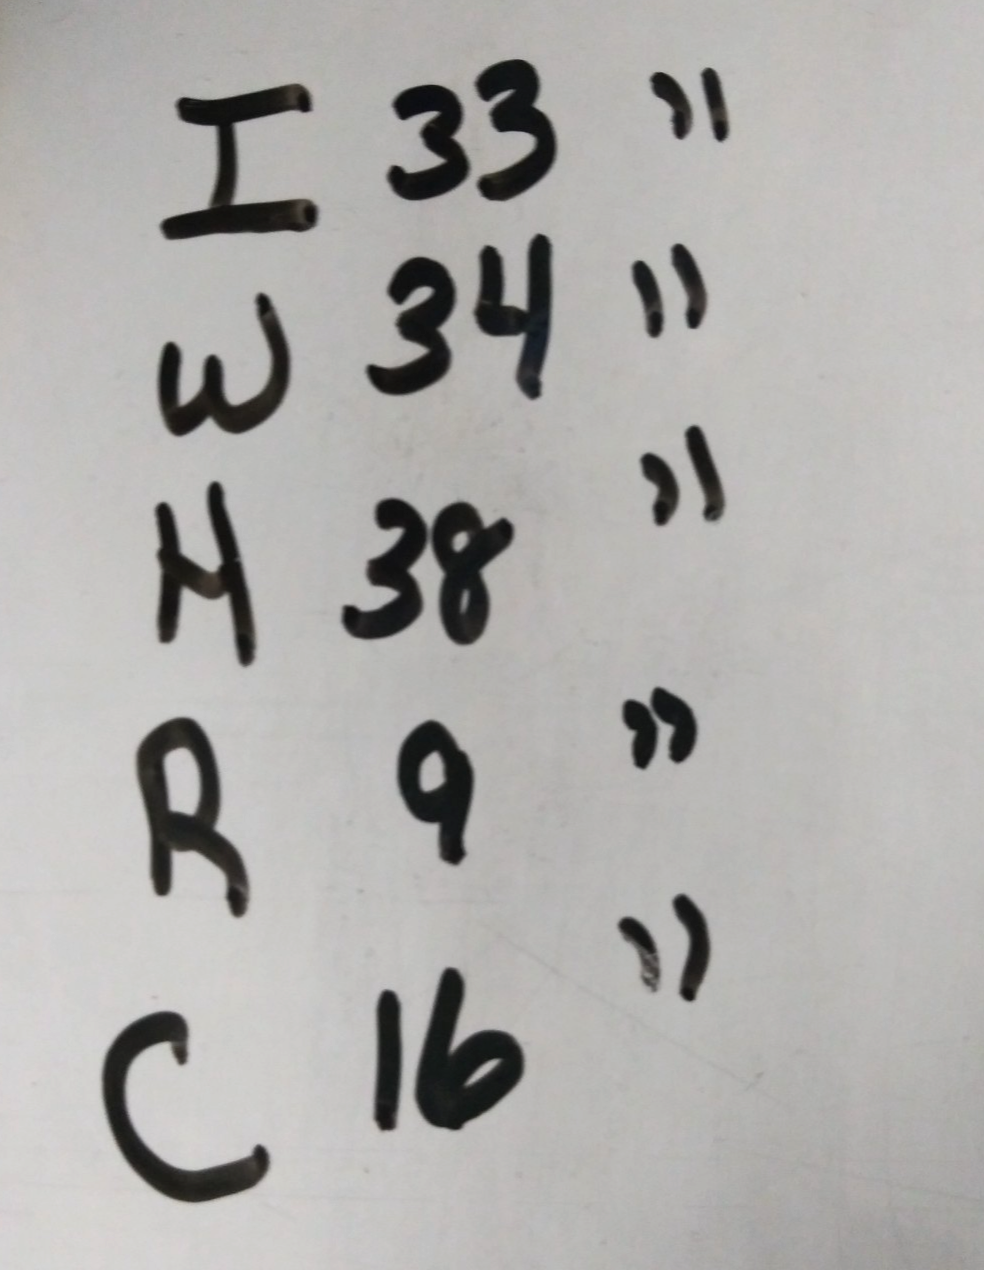 I 33 "
W 34 "
H 38 "
R 9 "
C 16 "